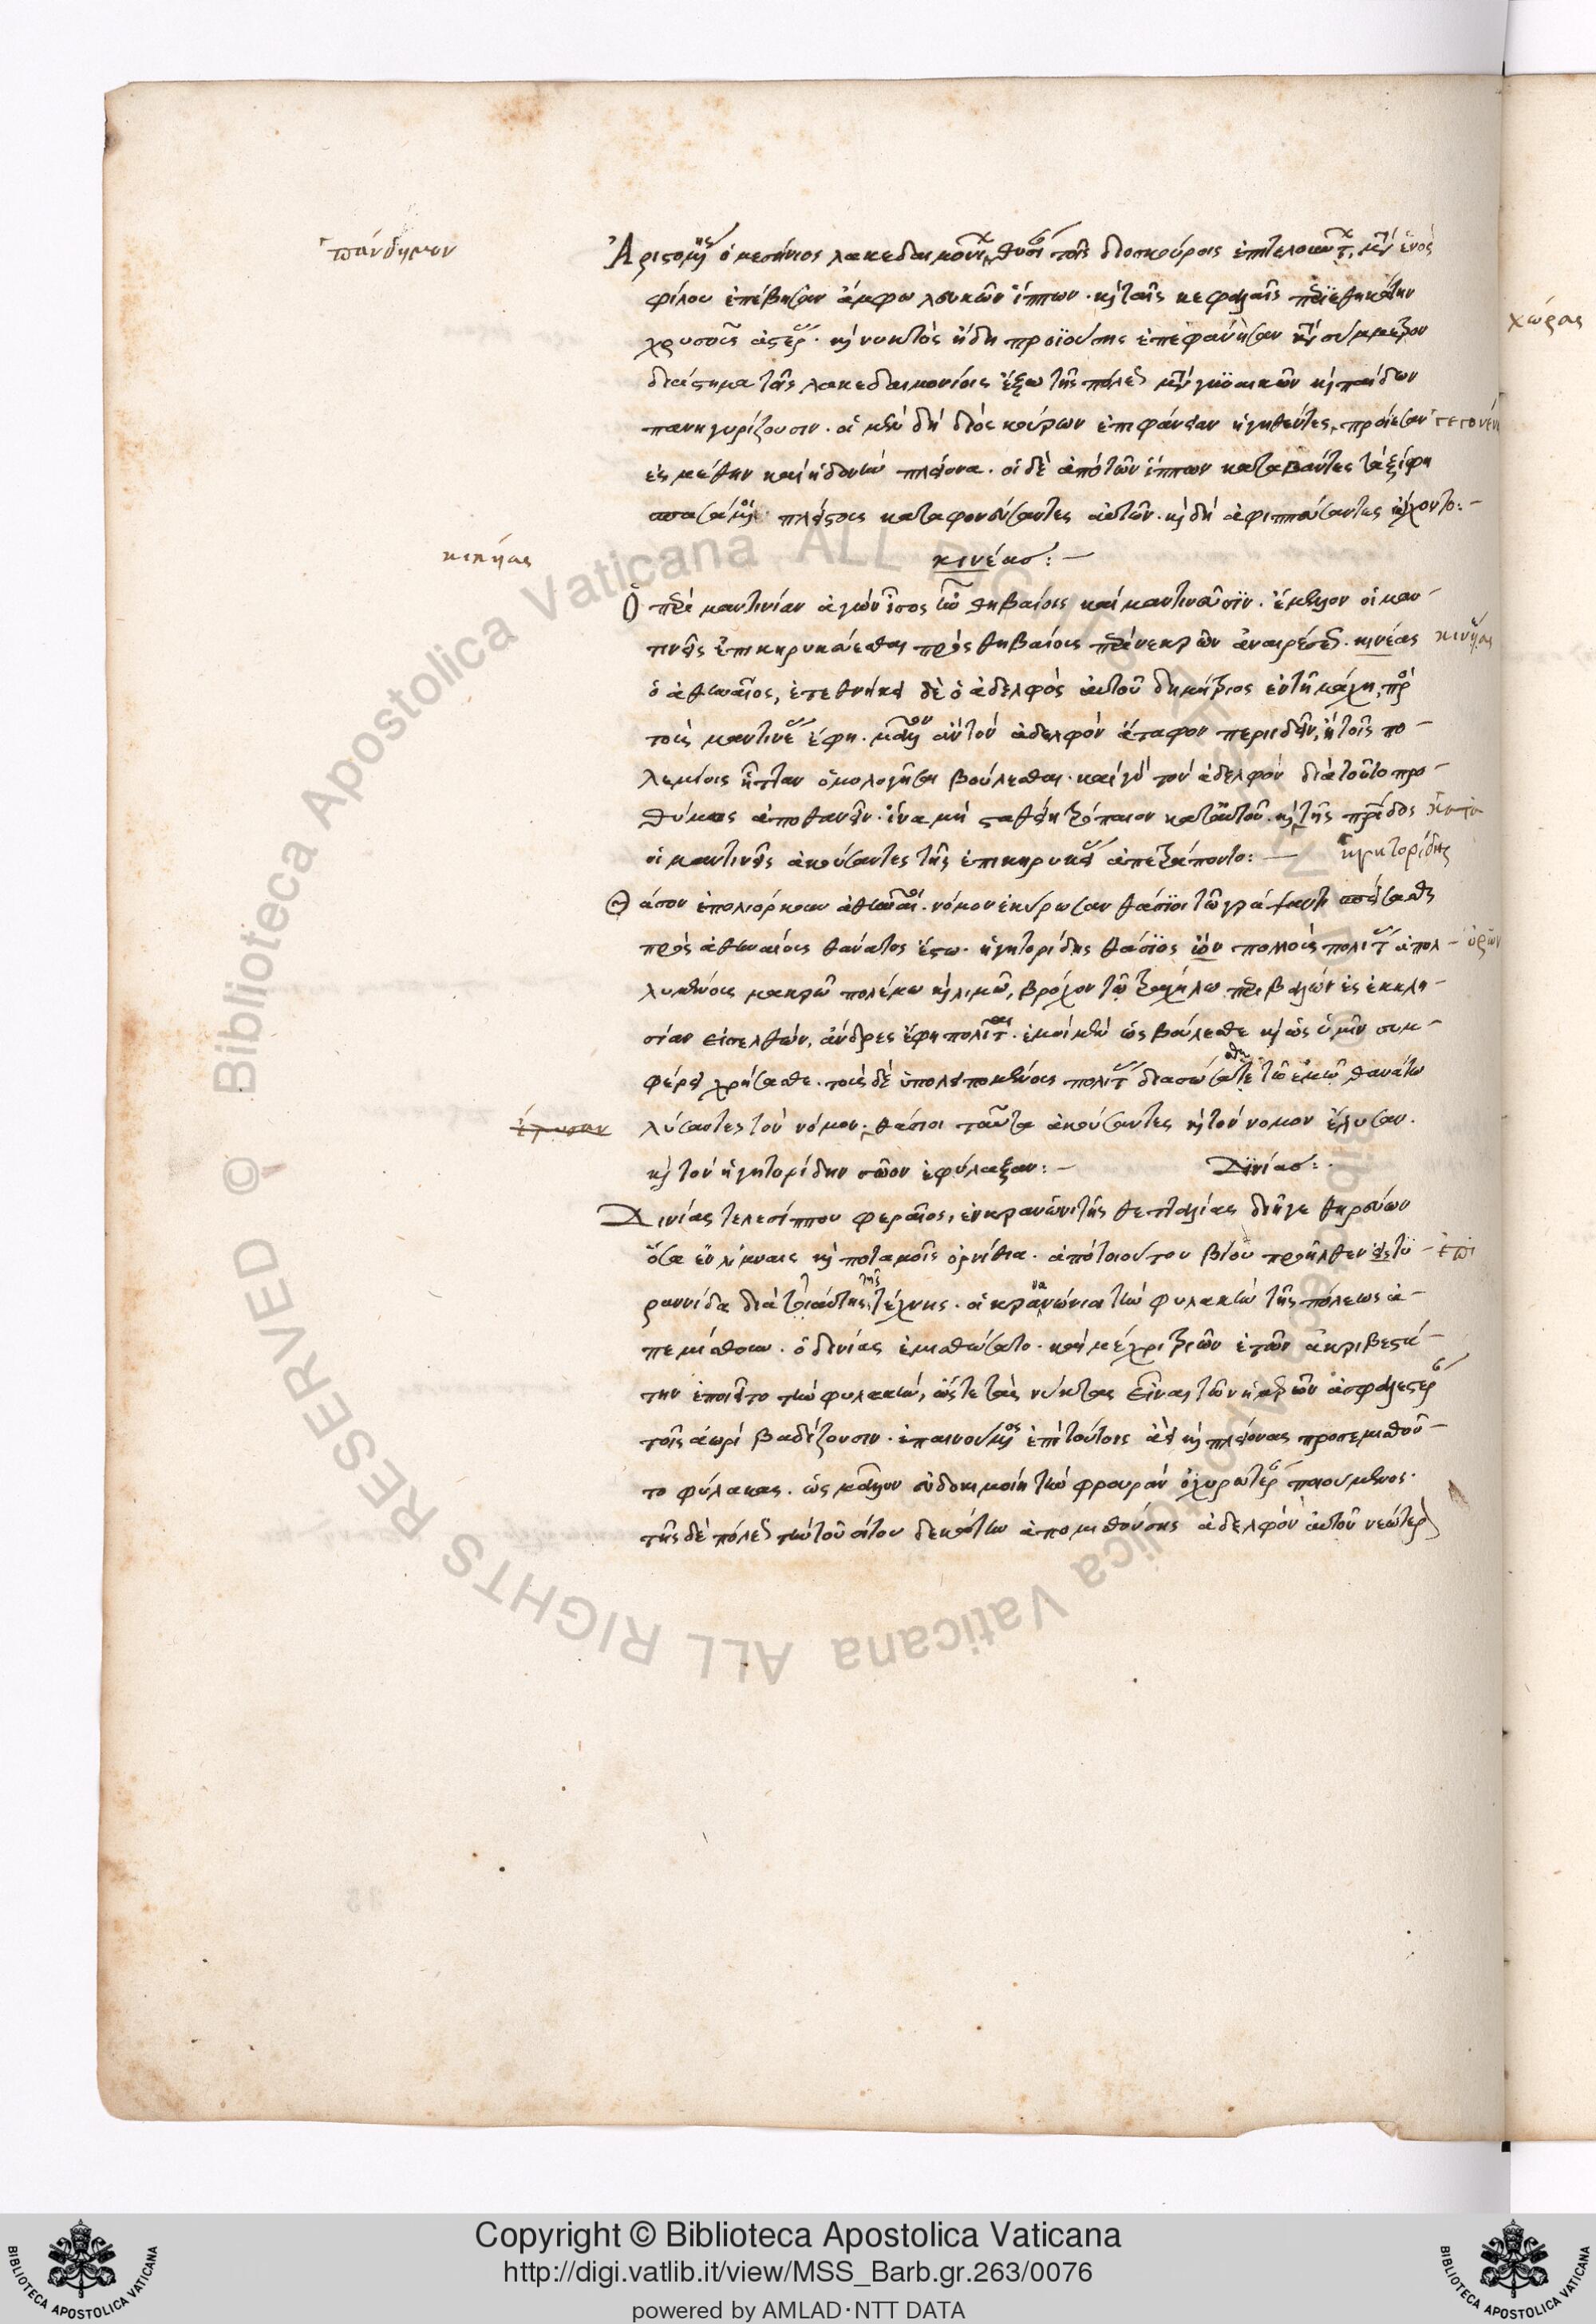 πάνδημον
Ἀριστομένης ὁ μεσήνιος λακεδαιμονίων θυσίαν τοῖς διοσκούροις ἐπιτελούντων, μεθ' ἑνὸς
φίλου ἐπέβησαν ἄμφω λευκῶν ἵππων. καὶ ταῖς κεφαλαῖς περιεθηκάτην
χώρας
χρυσοῦς ἀστέρας. καὶ νυκτὸς ἤδη προϊούσης ἐπεφάνησαν κατὰ σύμμετρον
διάστημα τοῖς λακεδαιμονίοις ἔξω τῆς πόλεως μετὰ γυναικῶν καὶ παίδων
πανηγυρίζουσιν. οἱ μὲν δὴ διοσκούρων ἐπιφάνειαν ἡγηθέντες, προΐεσαν
ἐς μέθην καὶ ἡδονὴν πλείονα. οἱ δὲ ἀπὸ τῶν ἵππων καταβάντες τὰ ξίφη
σπασάμενοι πλείστους καταφονεύσαντες αὐτῶν. καὶ δὴ ἀφιππεύσαντες ᾤχοντο:–
κινηίας
κινέασ:–
Ὁ περὶ μαντινίαν ἀγὼν ἴσος ἦν θηβαίοις καὶ μαντινεῦσιν. ἔμελλον οἱ μαν–
τινεῖς ἐπικηρυκεύεσθαι πρὸς θηβαίους περὶ νεκρῶν ἀναιρέσεως. κινέας
ὁ ἀθηναῖος, ἐτεθνήκει δὲ ὁ ἀδελφὸς αὐτοῦ δημήτριος ἐν τῇ μάχῃ, πρὸς
τοὺς μαντινέας ἔφη. μᾶλλον ἂν τὸν ἀδελφὸν ἄταφον περιιδεῖν, ἢ τοῖς πο–
λεμίοις ἧτταν ὁμολογῆσαι βούλεσθαι. καὶ γὰρ τὸν ἀδελφὸν διὰ τοῦτο προ–
θύμως ἀποθανεῖν. ἵνα μὴ σταθείη τρόπαιον κατ' αὐτοῦ. καὶ τῆς πατρίδος
οἱ μαντινεῖς ἀκούσαντες τῆς ἐπικηρυκείας ἀπετράποντο:–
ἡγητορίδης
Θάσον ἐπολιόρκουν ἀθηναῖοι. νόμον ἐκύρωσαν θάσιοι τῷ γράψαντι σπείσασθαι
πρὸς ἀθηναίους θάνατος ἔστω. ἡγητορίδης θάσιος ἰὼν πολλοὺς πολίτας ἀπολ–
ὁρῶν
λυμένους μακρῷ πολέμῳ καὶ λιμῷ, βρόχον τῷ τραχήλῳ περιβαλὼν ἐς ἐκκλη–
σίαν εἰσελθών, ἄνδρες ἔφη πολῖται. ἐμοὶ μὲν ὡς βούλεσθε καὶ ὡς ὑμῖν συμ–
φέρει χρήσασθε. τοὺς δὲ ὑπολειπομένους πολίτας διασώσατε τῷ ἐμῷ θανάτῳ
ἔλυσαν
λύσαντες τὸν νόμον. θάσιοι ταῦτα ἀκούσαντες καὶ τὸν νομον ἔλυσαν.
καὶ τὸν ἡγητορίδην σῶον ἐφύλαξαν:–
Δινίασ:.
Δινίας τελεσίππου φεραῖος, ἐν κρανῶνι τῆς θετταλίας διῆγε θηρεύων
ὅσα ἐν λίμναις καὶ ποταμοῖς ὀρνίθια. ἀπὸ τοιούτου βίου προῆλθεν εἰς τυ–
ἐπὶ
ραννίδα διὰ τοιαύτης τῆς τέχνης. οἱ κρανώνιοι τὴν φυλακὴν τῆς πόλεως ἀ–
πεμίσθουν. ὁ δινίας ἐμισθώσατο. καὶ μέχρι τριῶν ἐτῶν ἀκριβεστά–
την ἐποιεῖτο τὴν φυλακήν, ὥστε τὰς νύκτας εἶναι τῶν ἡμερῶν ἀσφαλεστέρας
τοῖς ἀωρὶ βαδίζουσιν. ἐπαινούμενος ἐπὶ τούτοις ἀεὶ καὶ πλείονας προσεμισθοῦ–
το φύλακας. ὡς μᾶλλον εὐδοκιμοίη τὴν φρουρὰν ὀχυρωτέραν ποιούμενος.
τῆς δὲ πόλεως τὴν τοῦ σίτου δεκάτην ἀπομισθούσης ἀδελφὸν αὐτοῦ νεώτερον
Copyright © Biblioteca Apostolica Vaticana
http://digi.vatlib.it/view/MSS_Barb.gr.263/0076
powered by AMLAD·NTT DATA
BIBLIOTECA APOSTOLICA VATICANA
BIBLIOTECA APOSTOLICA VATICANA
© Biblioteca Apostolica Vaticana ALL RIGHTS RESERVED